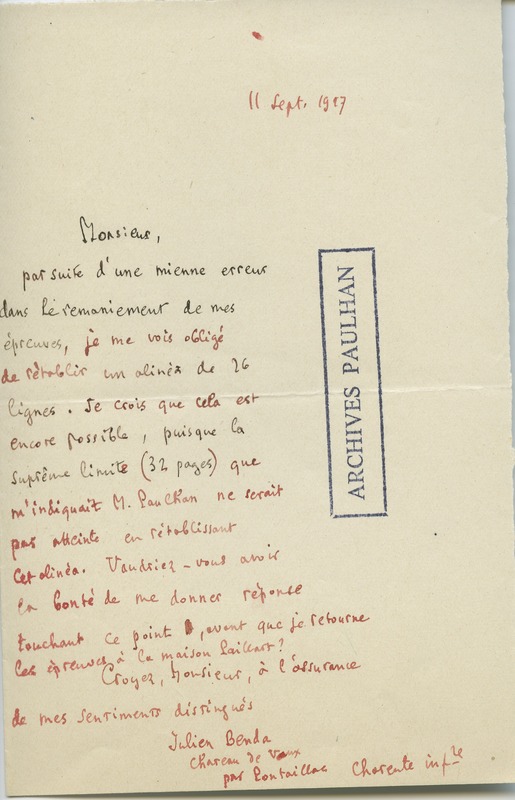 11 Sept. 1927
Monsieur,
par suite d'une mienne erreur
dans le remaniement de mes
épreuves, je me vois obligé
de rétablir un alinéa de 26
lignes. Je crois que cela est
encore possible, puisque la
suprême limite (32 pages) que
m'indiquait M. Paulhan ne serait
pas atteinte en rétablissant
cet alinéa. Voudriez-vous avoir
la bonté de me donner réponse
touchant ce point, avant que je retourne
les épreuves à la maison Paillart?
Croyez, Monsieur, à l'assurance
de mes sentiments distingués
Julien Benda
Chateau de Vaux
par Pontaillac Charente infre
ARCHIVES PAULHAN